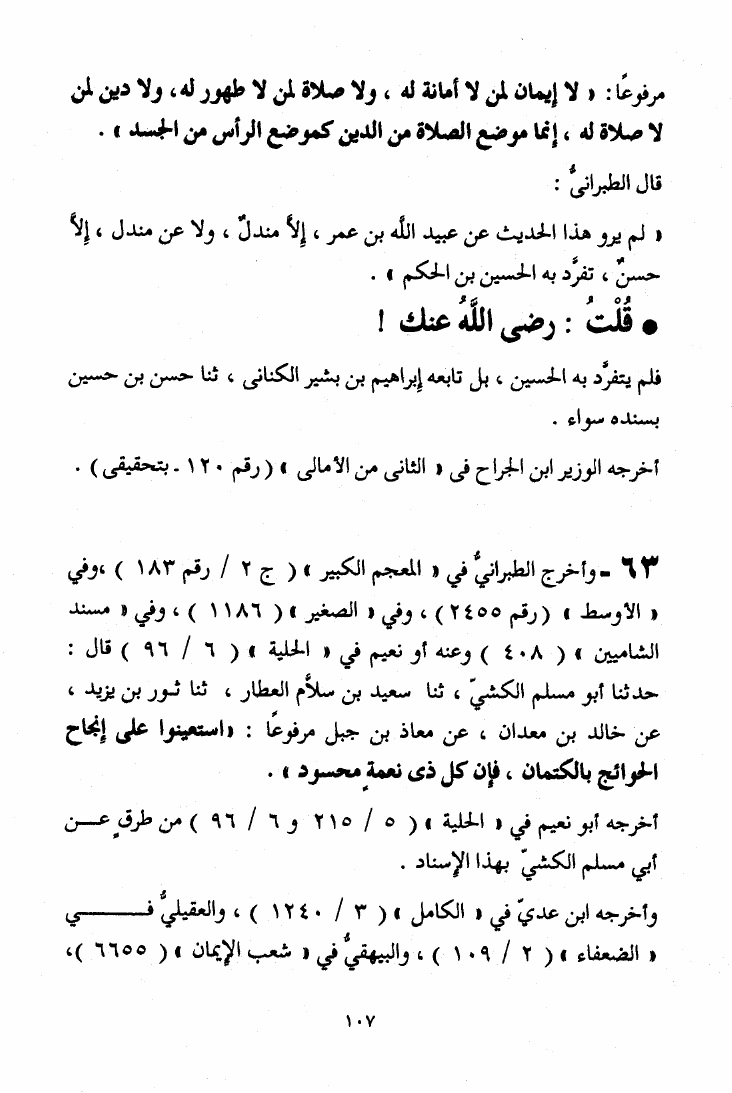 مرفوعًا : « لا إيمان لمن لا أمانة له ، ولا صلاة لمن لا طهور له، ولا دين لمن
لا صلاة له ، إنما موضع الصلاة من الدين كموضع الرأس من الجسد » .
قال الطبرانىُّ :
« لم يرو هذا الحديث عن عبيد اللَّه بن عمر ، إلاَّ مندلٌ ، ولا عن مندل ، إلاَّ
حسنٌ ، تفرَّد به الحسين بن الحكم » .
• قُلْتُ : رضى اللَّهُ عنك !
فلم يتفرَّد به الحسين ، بل تابعه إبراهيم بن بشير الكنانى ، ثنا حسن بن حسين
بسنده سواء .
أخرجه الوزير ابن الجراح فى « الثانى من الأمالى » ( رقم ١٢٠ - بتحقيقى ) .
٦٣ - وأخرج الطبرانيُّ في « المعجم الكبير » ( ج ٢ / رقم ١٨٣ ) ،وفي
« الأوسط » ( رقم ٢٤٥٥ ) ، وفي « الصغير » ( ١١٨٦ ) ، وفي « مسند
الشاميين » ( ٤٠٨ ) وعنه أبو نعيم في « الحلية » ( ٦ / ٩٦ ) قال :
حدثنا أبو مسلم الكشيّ ، ثنا سعيد بن سلاَّم العطار ، ثنا ثور بن يزيد ،
عن خالد بن معدان ، عن معاذ بن جبل مرفوعًا : «استعينوا على إنجاح
الحوائج بالكتمان ، فإن كل ذى نعمةٍ محسود » .
أخرجه أبو نعيم في « الحلية » ( ٥ / ٢١٥ و ٦ / ٩٦ ) من طرقٍ عن
أبي مسلم الكشيّ بهذا الإسناد .
وأخرجه ابن عديّ في « الكامل » ( ٣ / ١٢٤٠ ) ، والعقيليُّ في
« الضعفاء » ( ٢ / ١٠٩ ) ، والبيهقيُّ في « شعب الإيمان » ( ٦٦٥٥ ) ،
١٠٧